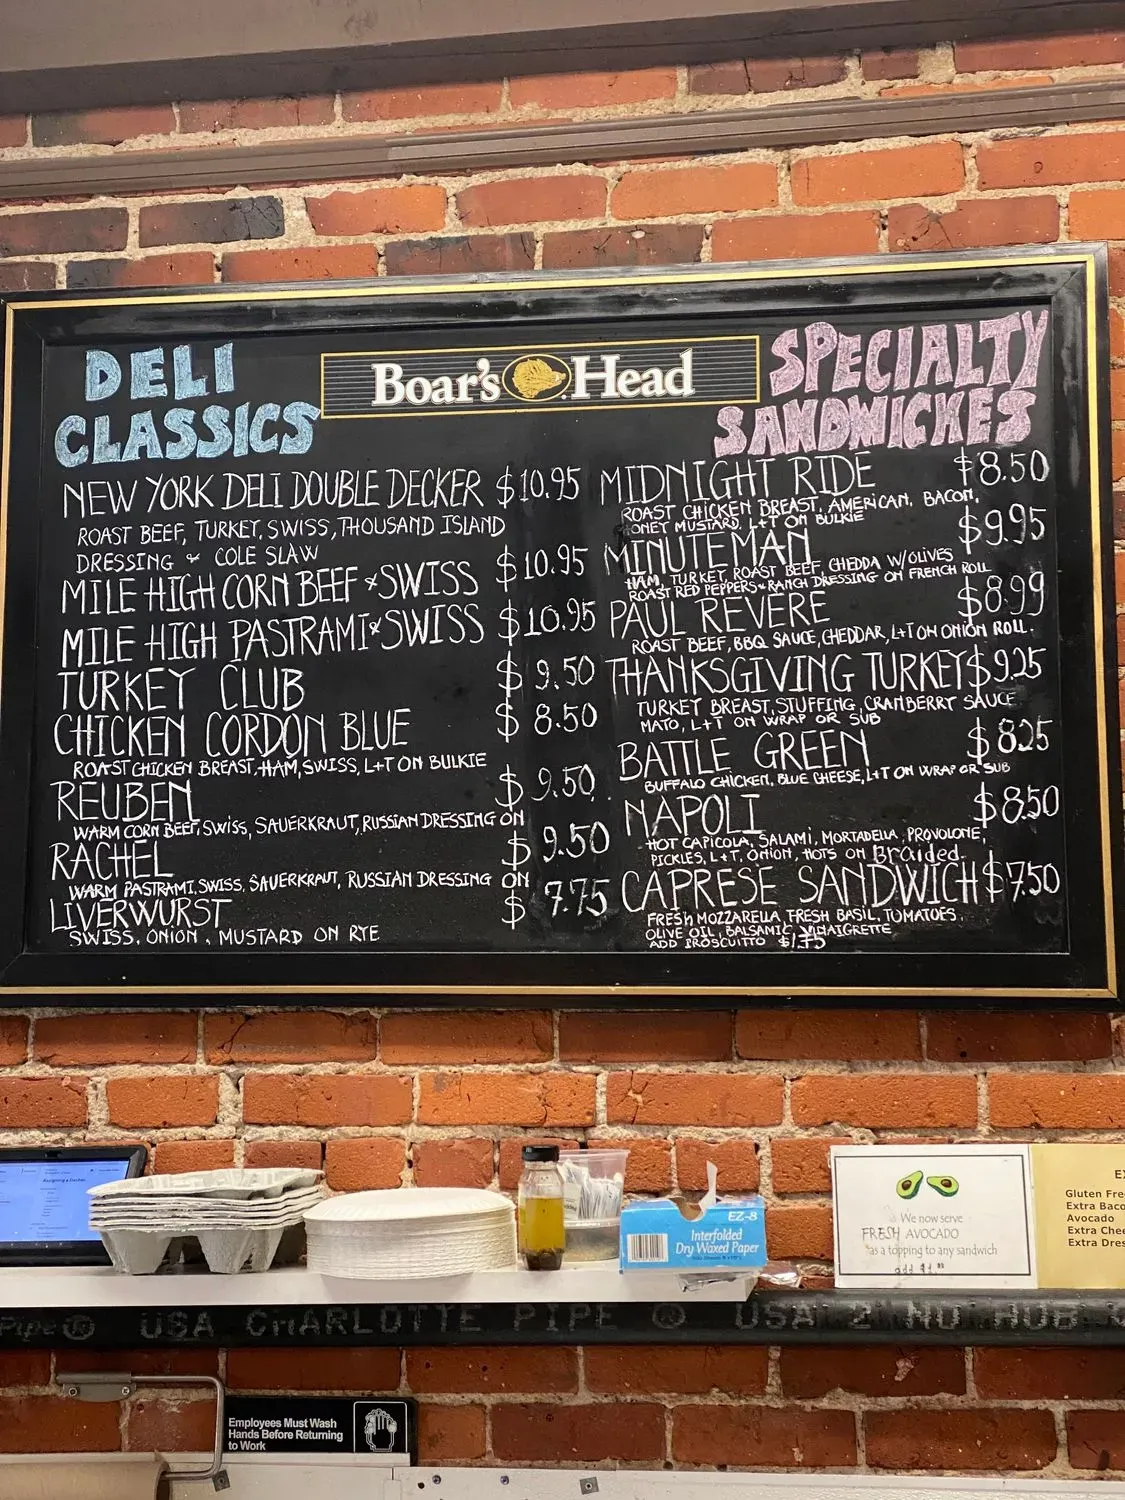 DELI
CLASSICS
Boar's Head
SPECIALTY
SANDWICHES
NEW YORK DELI DOUBLE DECKER $10.95
ROAST BEEF, TURKEY, SWISS, THOUSAND ISLAND
DRESSING & COLE SLAW
MILE HIGH CORN BEEF & SWISS $10.95
MILE HIGH PASTRAMI & SWISS $10.95
TURKEY CLUB $9.50
CHICKEN CORDON BLUE $8.50
ROAST CHICKEN BREAST, HAM, SWISS, L+T ON BULKIE
REUBEN $9.50
WARM CORN BEEF, SWISS, SAUERKRAUT, RUSSIAN DRESSING ON
RACHEL $9.50
WARM PASTRAMI, SWISS, SAUERKRAUT, RUSSIAN DRESSING ON
LIVERWURST $7.75
SWISS, ONION, MUSTARD ON RYE
MIDNIGHT RIDE $8.50
ROAST CHICKEN BREAST, AMERICAN, BACON,
HONEY MUSTARD, L+T ON BULKIE
MINUTEMAN $9.95
HAM, TURKEY, ROAST BEEF, CHEDDA W/OLIVES
ROAST RED PEPPERS & RANCH DRESSING ON FRENCH ROLL
PAUL REVERE $8.99
ROAST BEEF, BBQ SAUCE, CHEDDAR, L+T ON ONION ROLL.
THANKSGIVING TURKEY $9.25
TURKEY BREAST, STUFFING, CRANBERRY SAUCE
MATO, L+T ON WRAP OR SUB
BATTLE GREEN $8.25
BUFFALO CHICKEN, BLUE CHEESE, L+T ON WRAP OR SUB
NAPOLI $8.50
HOT CAPICOLA, SALAMI, MORTADELLA, PROVOLONE,
PICKLES, L+T, ONION, HOTS ON Braided.
CAPRESE SANDWICH $7.50
FRESH MOZZARELLA, FRESH BASIL, TOMATOES,
OLIVE OIL, BALSAMIC VINAIGRETTE
ADD PROSCUITTO $1.75
EZ-8
Interfolded
Dry Waxed Paper
We now serve
FRESH AVOCADO
as a topping to any sandwich
add $1.00
Gluten Fre
Extra Baco
Avocado
Extra Chee
Extra Dres
Pipe ® USA CHARLOTTE PIPE ® USA 2 NO HUB
Employees Must Wash
Hands Before Returning
to Work